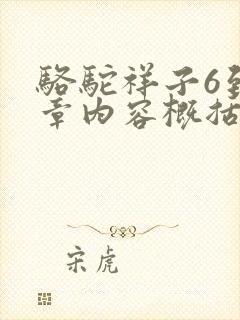 骆驼祥子6到
章内容概括
宋虎